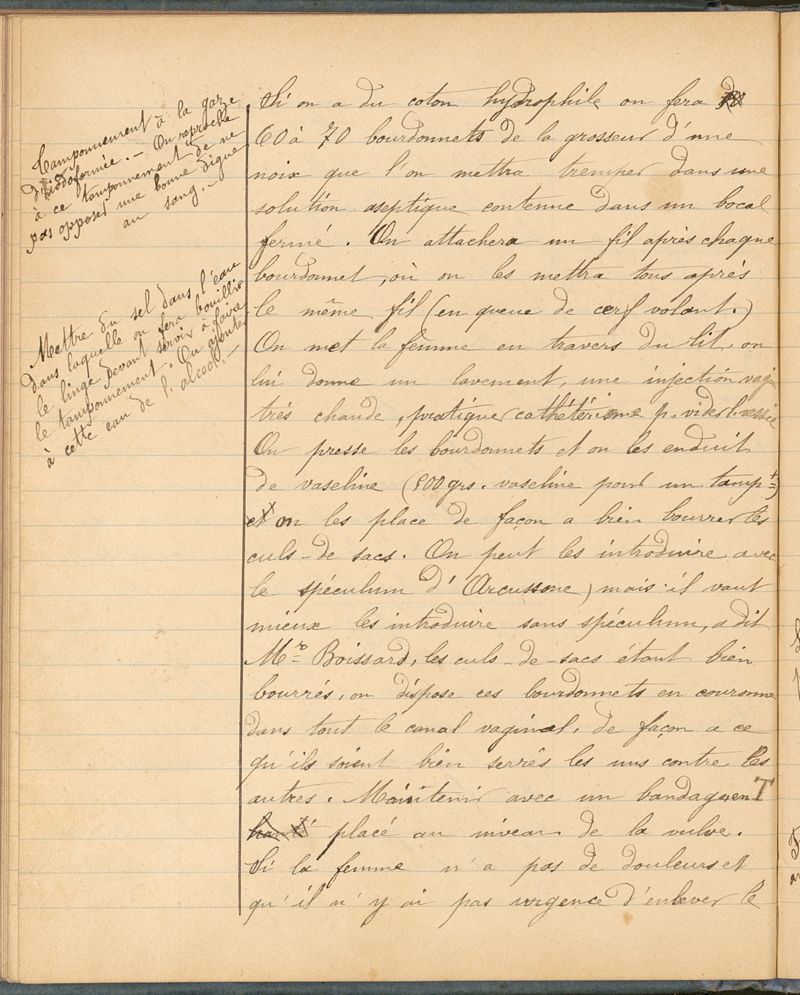 Tamponnement à la gaze
d'Iodoformée. — On reproche
à ce tamponnement de ne
pas opposer une bonne digue
au sang. —
Mettre du sel dans l'eau
dans laquelle on fera bouillir
le linge devant servir à faire
le tamponnement. On ajoute
à cette eau de l'alcool. —
Si on a du coton hydrophile on fera
60 à 70 bourdonnets de la grosseur d'une
noix que l'on mettra tremper dans une
solution aseptique contenue dans un bocal
fermé. On attachera un fil après chaque
bourdonnet, où on les mettra tous après
le même fil (en queue de cerf volant.)
On met la femme en travers du lit, on
lui donne un lavement, une injection vagin
très chaude, pratiquer cathétérisme p. vider l. vessie
On presse les bourdonnets et on les enduit
de vaseline (500 grs. vaseline pour un tampt)
et on les place de façon a bien bourrer les
culs-de sacs. On peut les introduire avec
le spéculum d'
mais il vaut
mieux les introduire sans spéculum, a dit
Mr Boissard, les culs-de-sacs étant bien
bourrés, on dispose ces bourdonnets en couronne
dans tout le canal vaginal, de façon a ce
qu'ils soient bien serrés les uns contre les
autres. Maintenir avec un bandage en T
placé au niveau de la vulve.
Si la femme n'a pas de douleurs et
qu'il n'y ai pas urgence d'enlever le